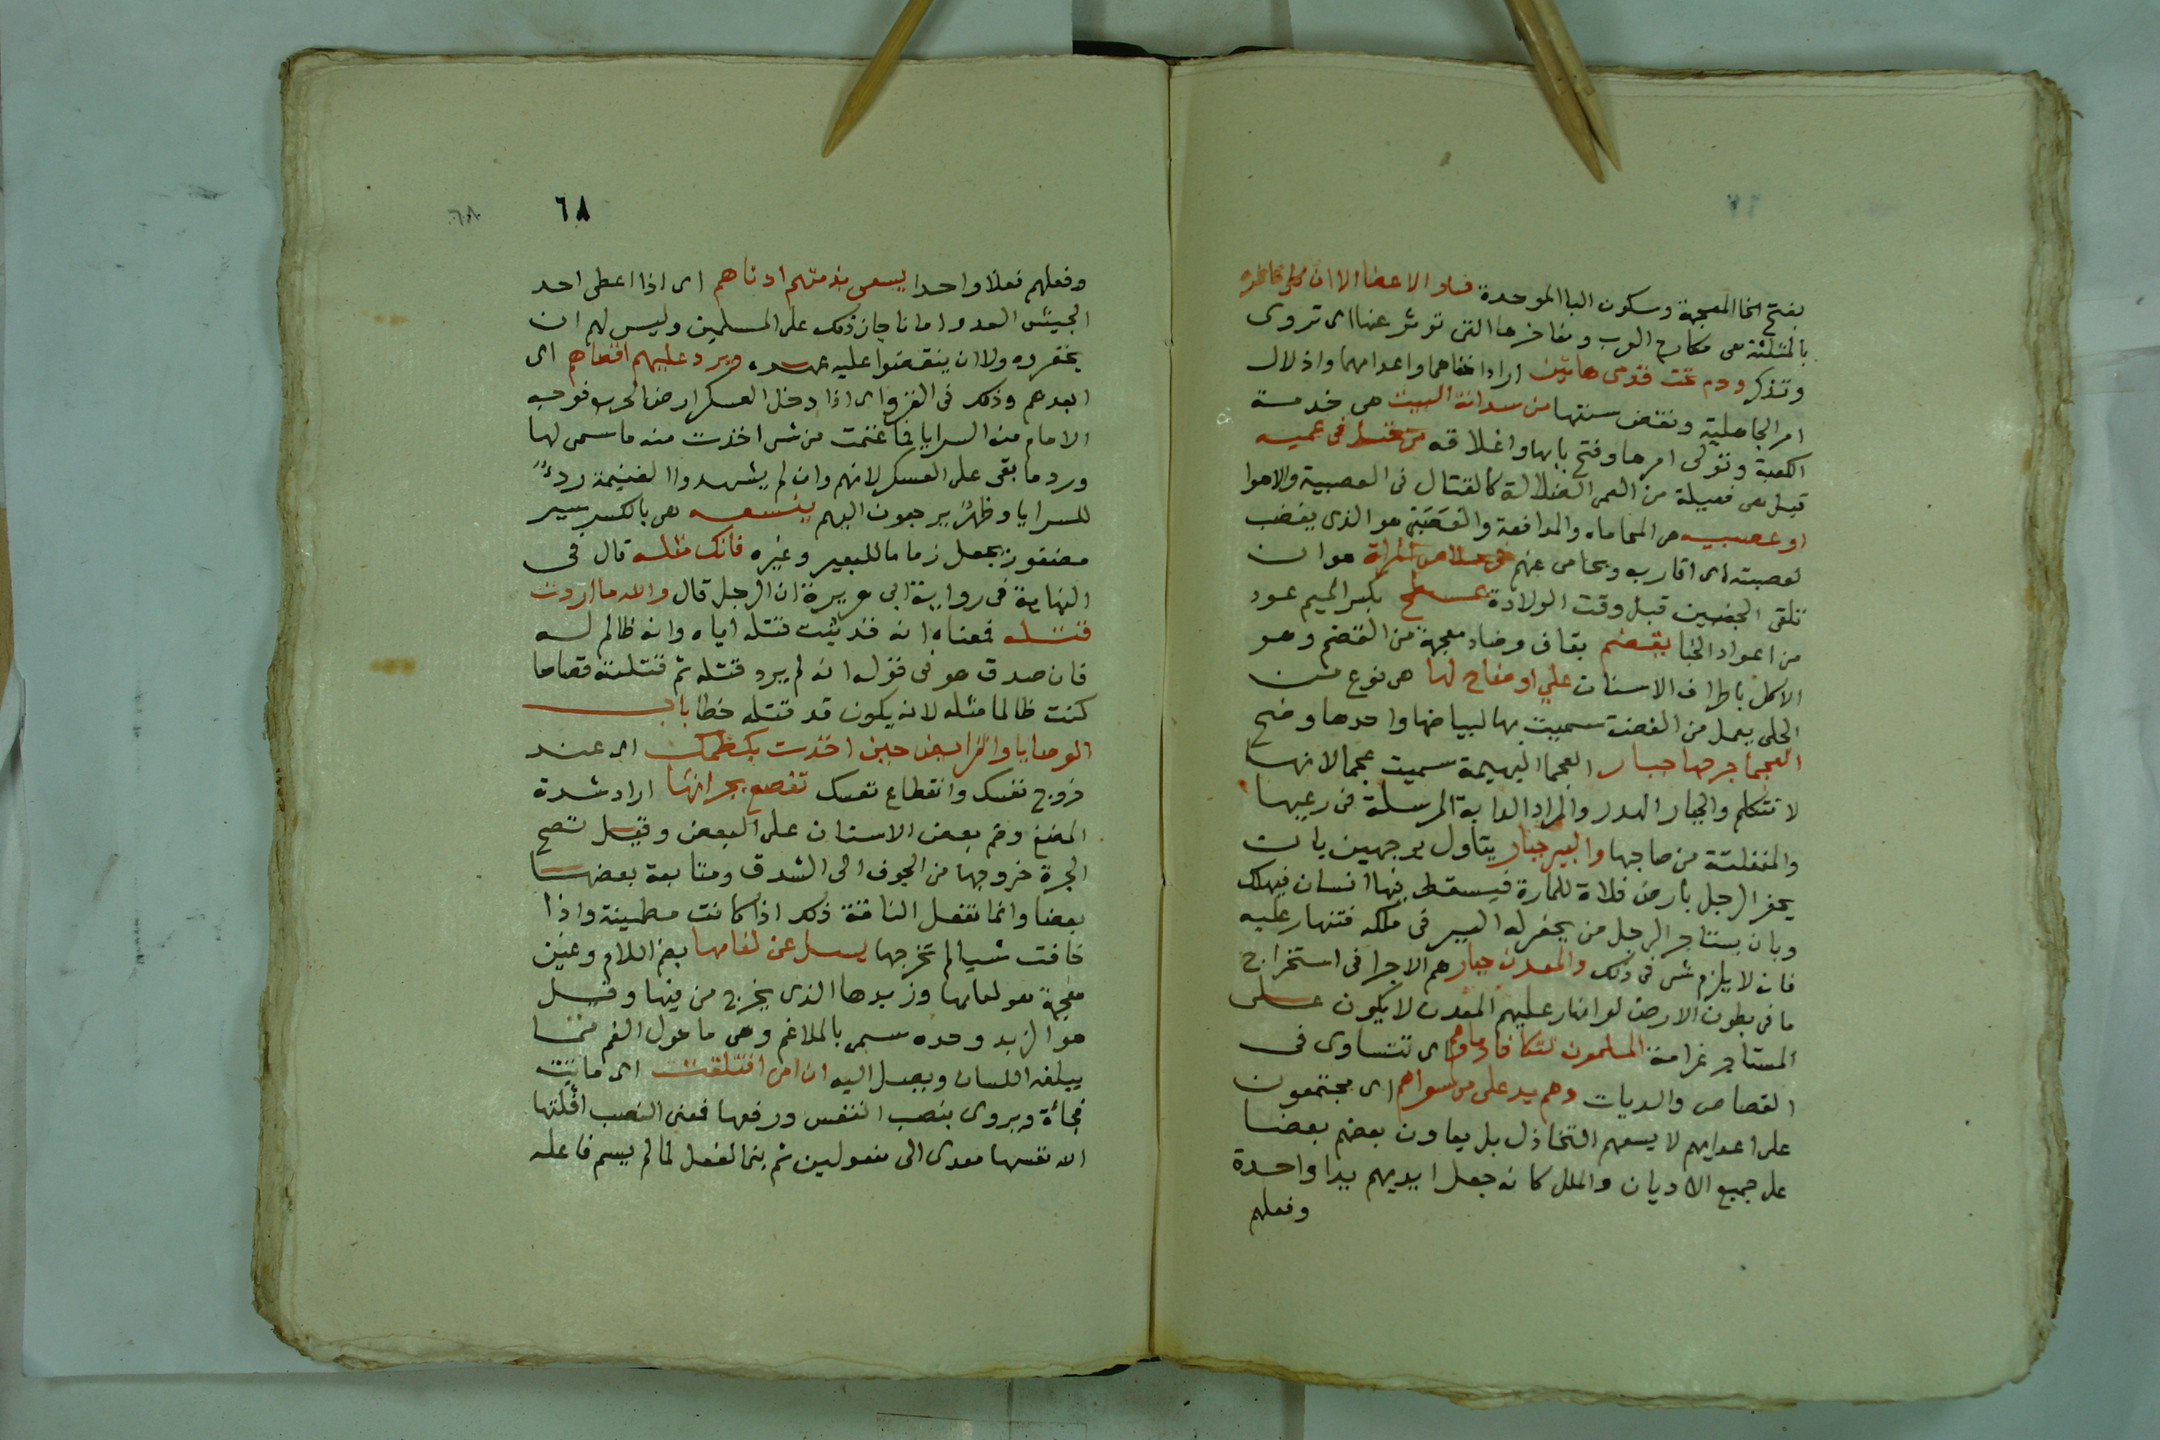 بفتح الخا المعجمة وسكون البا الموحدة فساد الاعضا الا ان كل ماثره
بالمثلثة هى مكارم العرب ومفاخرها التى توثر عنها اى تروى
وتذكر ودم تحت قدمى هاتين اراد اخفاها واعدامها واذلال
امر الجاهلية ونقض سنتها من سدانة البيت هى خدمة
الكعبة وتولى امرها وفتح بابها واغلاقه من قتل فى عميه
قيل هى فعيلة من العمى الضلالة كالقتال فى العصبية والاهوا
او عصبيه هى المحاماه والمدافعة والعَصَبَىّ هو الذى يغضب
لعصبته اى اقاربه ويحامى عنهم فى املاص المراة هو ان
تلقى الجنين قبل وقت الولادة بمسطح بكسر الميم عود
من اعواد الخبا يقضم بقاف وضاد معجمة من القضم وهو
الاكل باطراف الاسنان على اوضاح لها هى نوع من
الحلى يعمل من الفضة سميت بها لبياضها واحدها وضح
العجما جرحها جبار العجما البهيمة سميت عجما لانها
لا تتكلم والجبار الهدر والمراد الدابة المرسلة فى رعيها
والمنفلتة من صاحبها والبير جبار يتاول بوجهين بان
يحفر الرجل بارض فلاة للمارة فيسقط فيها انسان فيهلك
وبان يستاجر الرجل من يحفر له البير فى ملكه فتنهار عليه
فانه لا يلزم شى فى ذلك والمعدن جبار هم الاجرا فى استخراج
ما فى بطون الارض لو انهار عليهم المعدن لا يكون على
المستاجر غرامة المسلمون تتكافا دماوهم اى تتساوى فى
القصاص والديات وهم يد على من سواهم اى مجتمعون
على اعدايهم لا يسعهم التخاذل بل يعاون بعضهم بعضا
على جميع الاديان والملل كانه جعل ايديهم يدا واحدة
وفعلهم
٦٨
٦٨
وفعلهم فعلا واحدا يسعى بذمتهم ادناهم اى اذا اعطى احد
الجيش العدو امانا جاز ذلك على المسلمين وليس لهم ان
يخفروه ولا ان ينقضوا عليه عهده ويرد عليهم اقصاهم اى
ابعدهم وذلك فى الغزو اى اذا دخل العسكر ارض الحرب فوجه
الامام منه السرايا فما غنمت من شى اخذت منه ما سمى لها
ورد ما بقى على العسكر لانهم وان لم يشهدوا الغنيمة ردءٌ
للسرايا وظهرٌ يرجعون اليهم بنسعه هى بالكسر سير
مضفور يجعل زماما للبعير وغيره فانك مثله قال فى
النهاية فى رواية ابى هريرة ان الرجل قال والله ما اردت
قتله فمعناه انه قد ثبت قتله اياه وانه ظالم له
فان صدق هو فى قوله انه لم يرد قتله ثم قتلته قصاصا
كنت ظالما مثله لانه يكون قد قتله خطا باب
الوصايا والفرايض حين اخذت بكظمك اى عند
خروج نفسك وانقطاع نفسك تقصع بجرانها اراد شدة
المضغ وضم بعض الاسنان على البعض وقيل قصع
الجرة خروجها من الجوف الى الشدق ومتابعة بعضها
بعضا وانما تفعل الناقة ذلك اذا كانت مطمينة واذا
خافت شيا لم تخرجها يسيل عن لغامها بضم اللام وغين
معجمة هو لعابها وزبدها الذى يخرج من فيها وقيل
هو الزبد وحده سمى بالملاغم وهى ما حول الفم مما
يبلغه اللسان ويصل اليه ان امى افتلتت اى ماتت
فجاة ويروى بنصب النفس ورفعها فمعنى النصب افتلتها
الله نفسها معدى الى مفعولين ثم بنى الفعل لما لم يسم فاعله